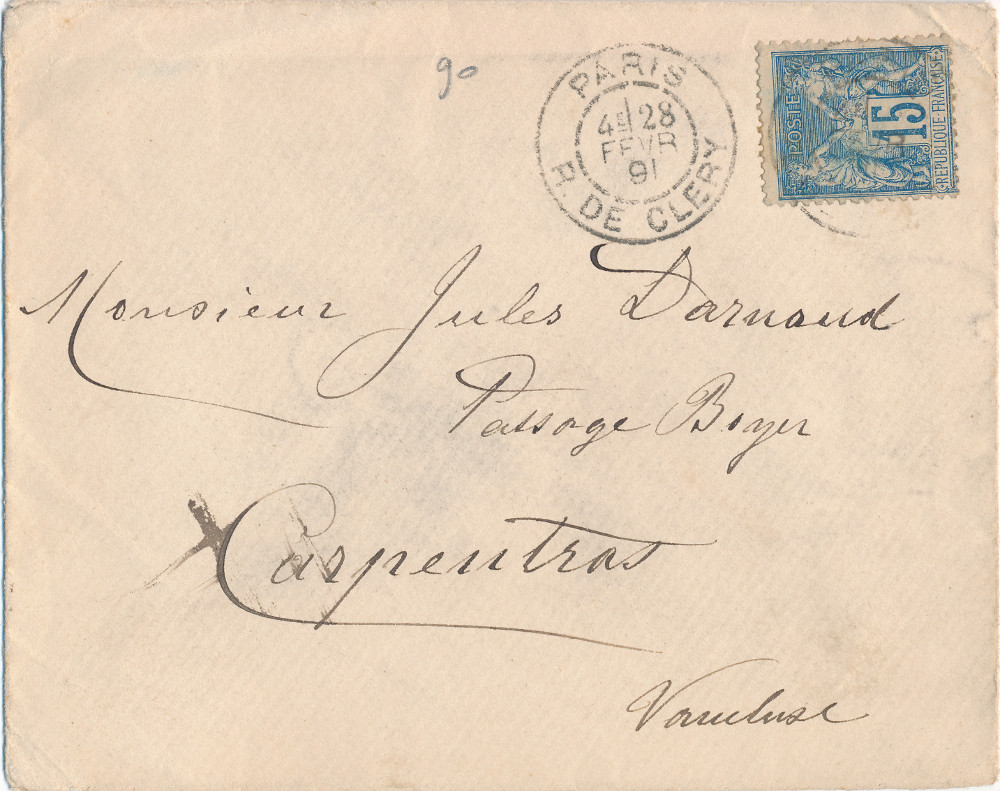 90
PARIS
4E 28
FEVR
91
R. DE CLERY
POSTE
15
RÉPUBLIQUE FRANÇAISE
Monsieur Jules Darnaud
Passage Boyer
Carpentras
Vaucluse